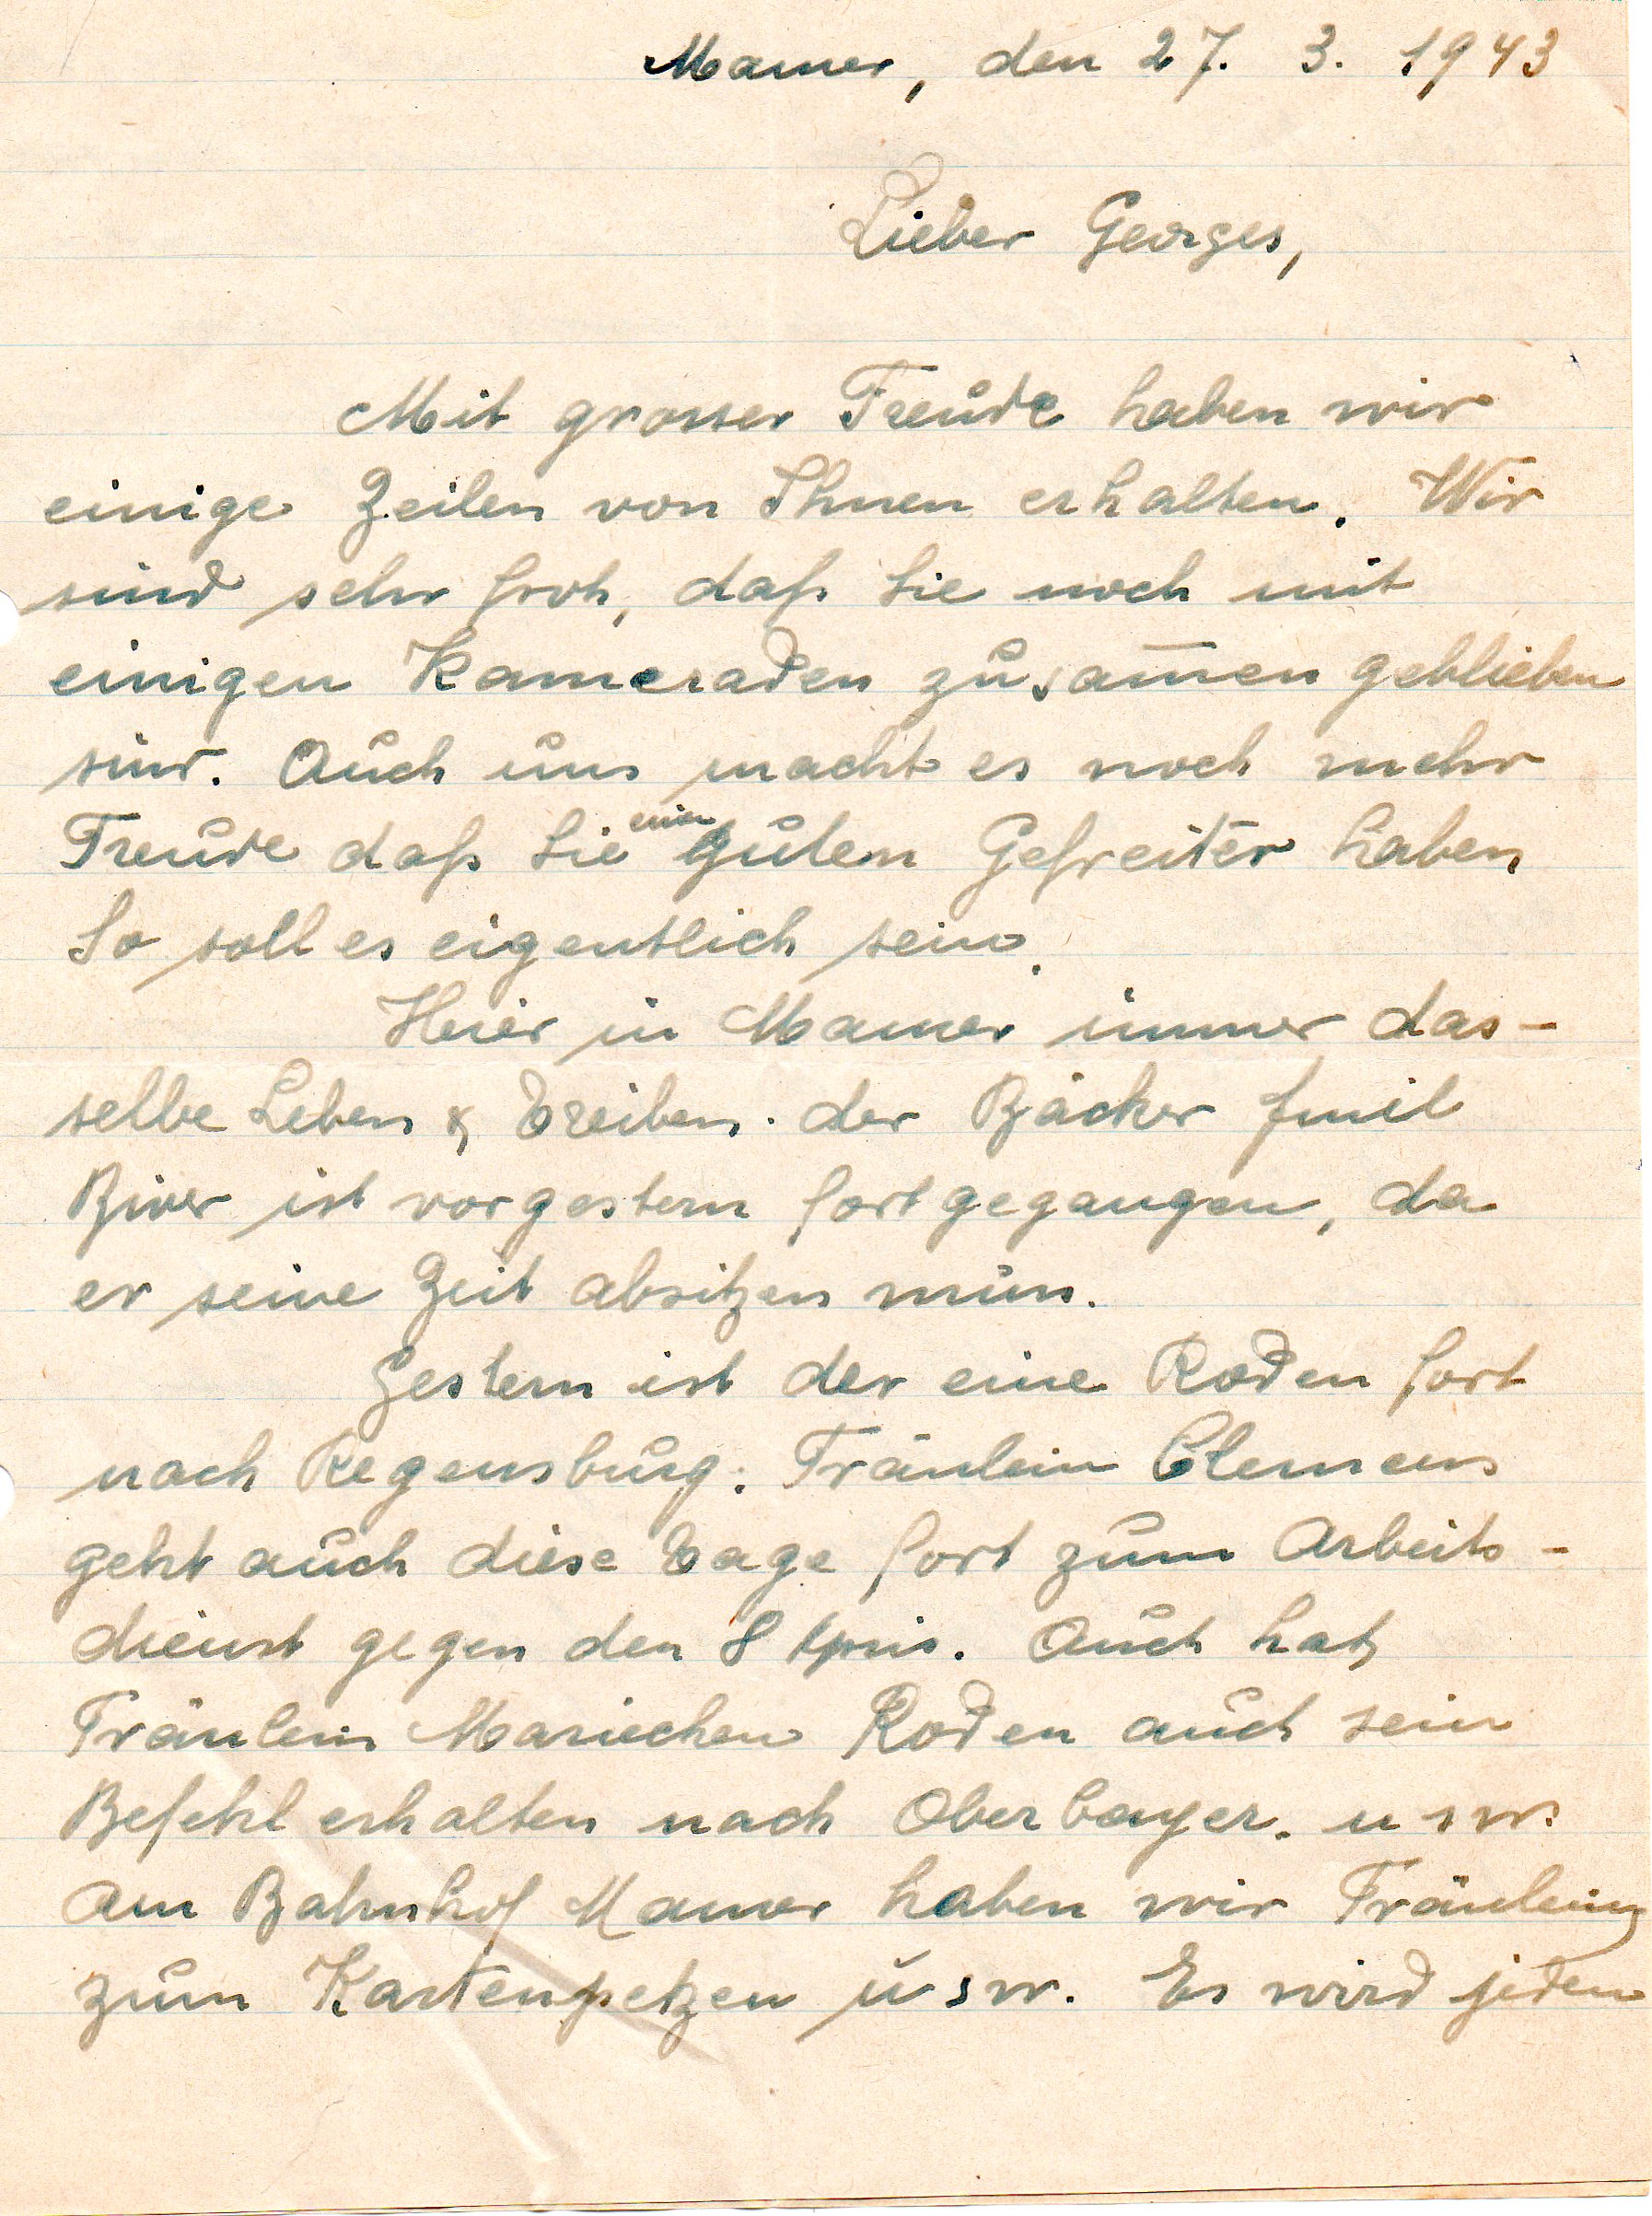 Mamer, den 27. 3. 1943
Lieber Georges,
Mit grosser Freude haben wir
einige Zeilen von Ihnen erhalten. Wir
sind sehr froh, daß Sie noch mit
einigen Kameraden zusam̅en geblieben
sind. Auch uns macht es noch mehr
Freude daß Sie einen gutem Gefreiter haben
So soll es eigentlich sein.
Hier in Mamer immer das-
selbe Leben & Treiben. der Bäcker Emil
Biver ist vorgestern fortgegangen, da
er seine Zeit absitzen muss.
Gestern ist der eine Roden fort
nach Regensburg. Fräulein Clemens
geht auch diese Tage fort zum Arbeits-
dienst gegen den 8 April. Auch hat
Fräulein Mariechen Roden auch sein
Befehl erhalten nach Oberbayer. usw.
Am Bahnhof Mamer haben wir Fräulein
zum Kartenpetzen usw. Es wird jeden